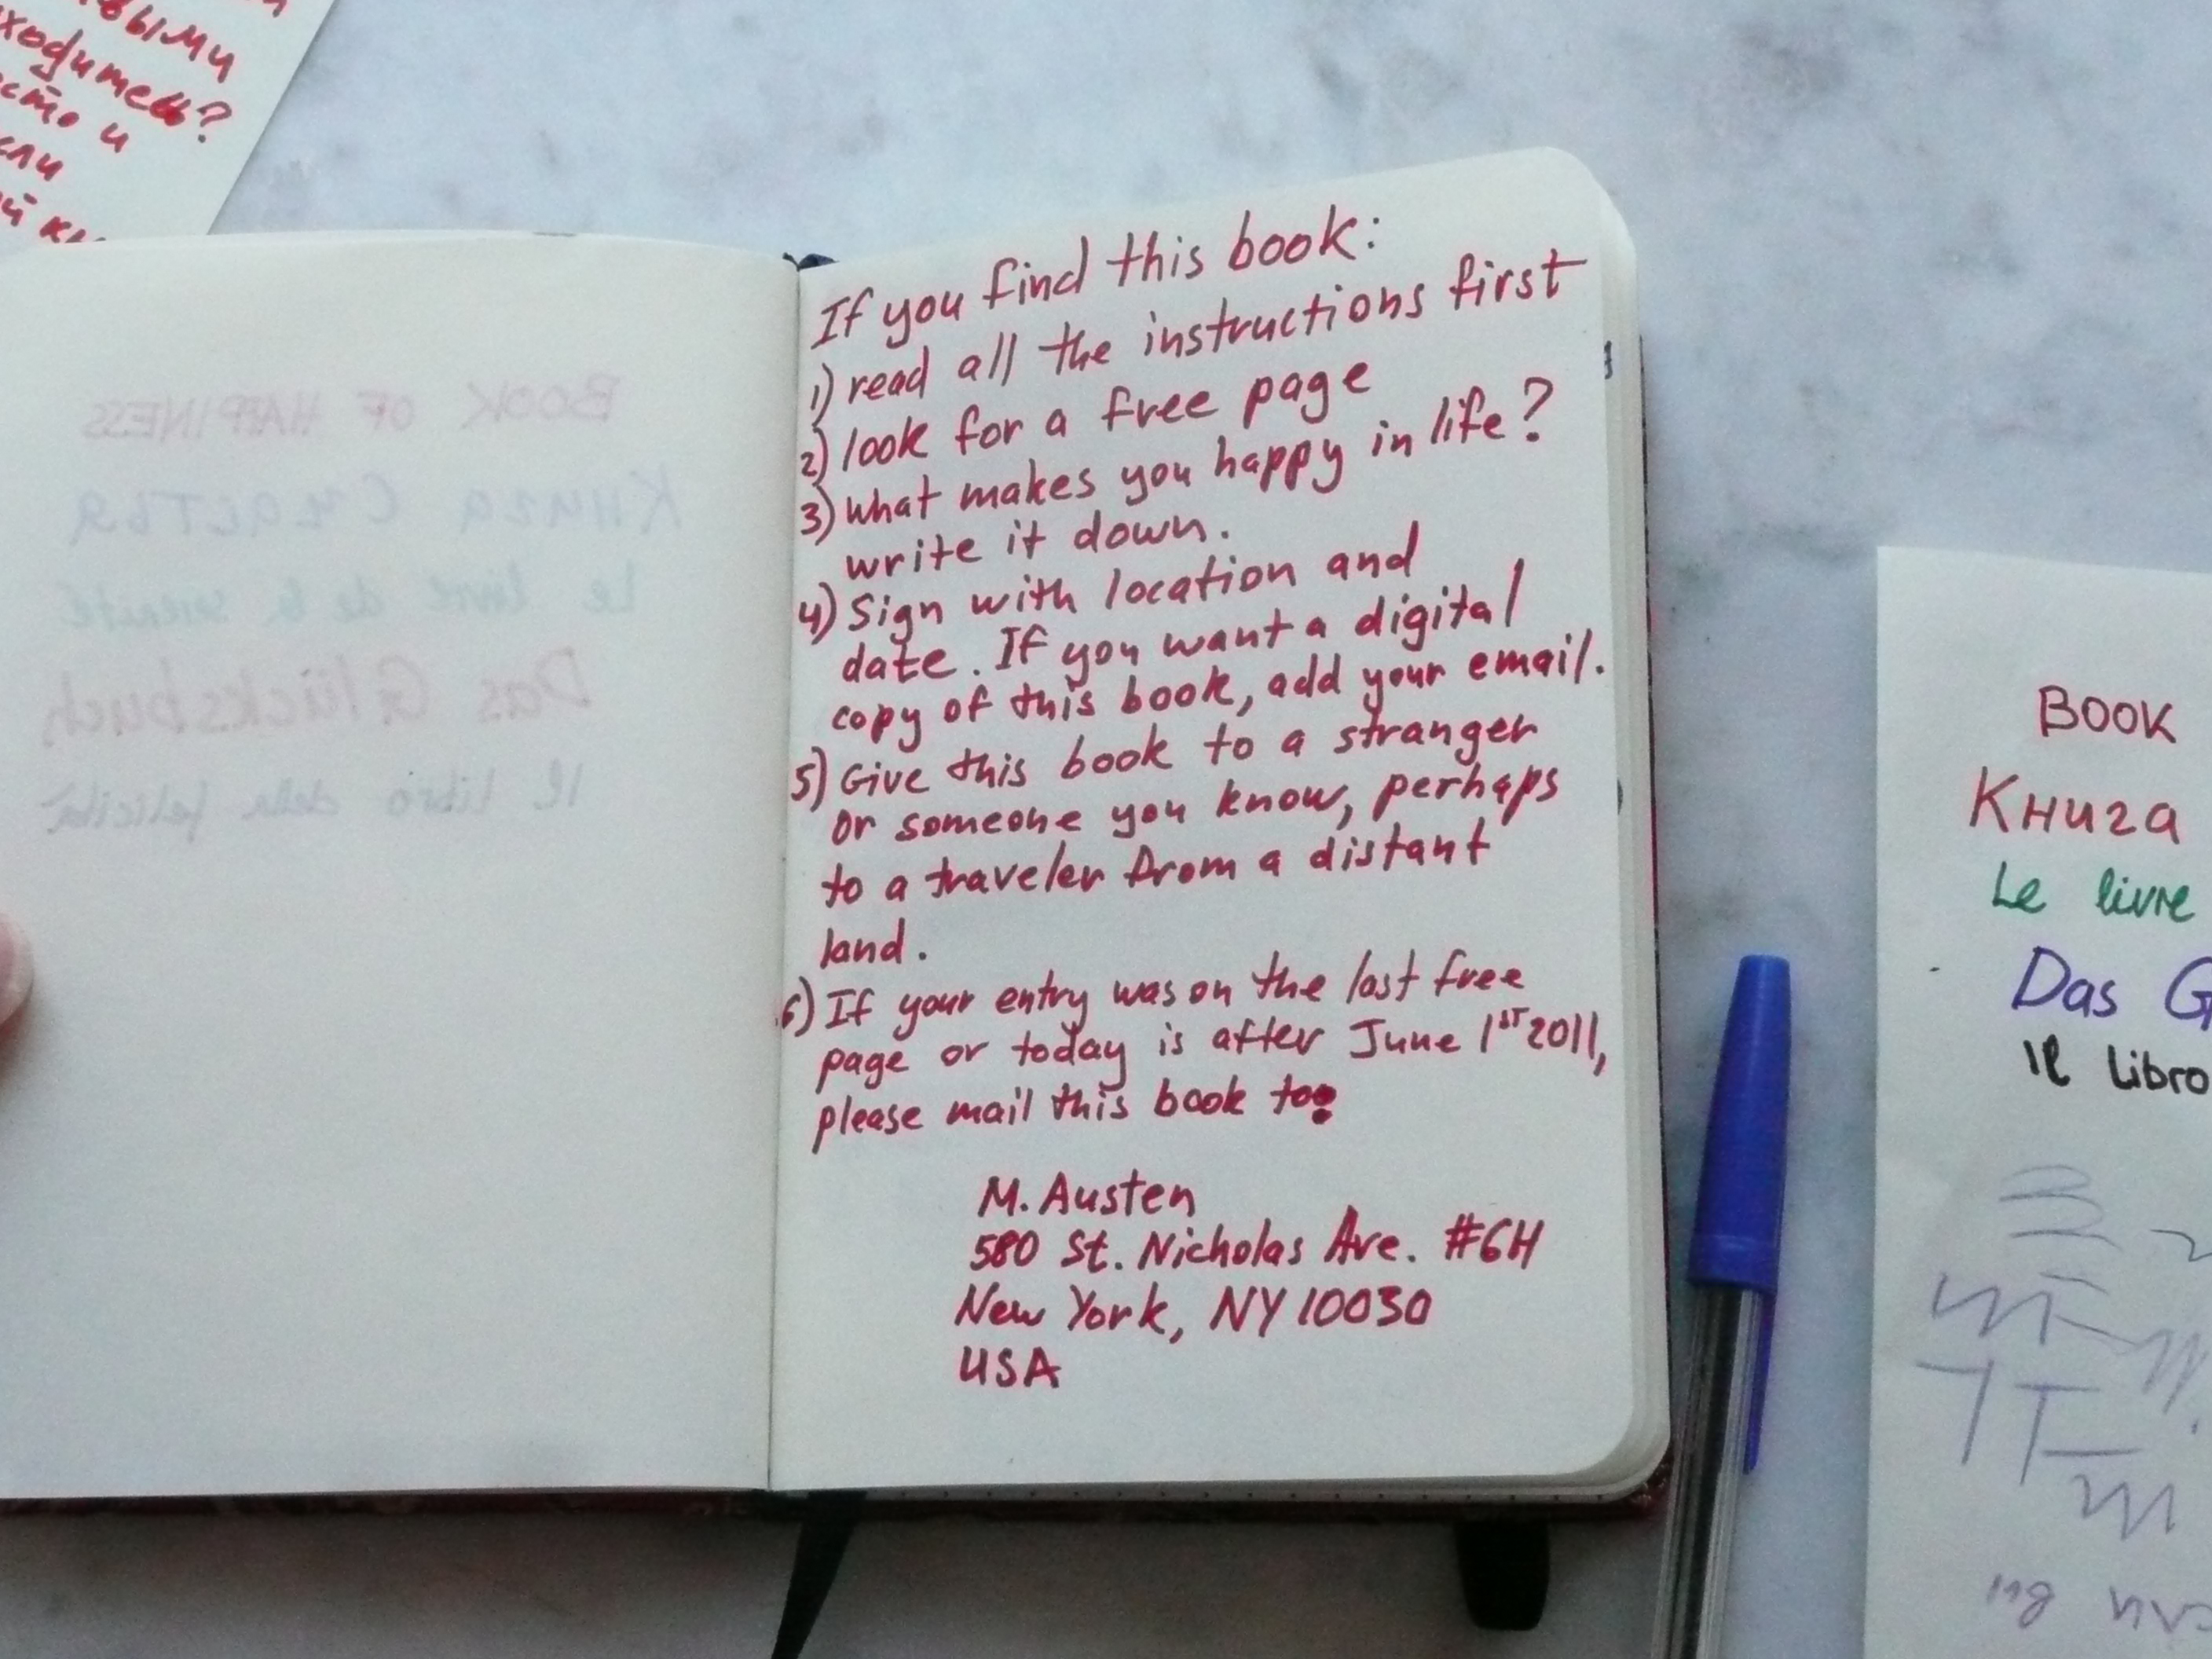 выми
ходитесь?
сто и
сли
BOOK OF HAPPINESS
Книга Счастья
Le livre de la
Das Glücksbuch
Il libro della felicità
If you find this book:
1) read all the instructions first
2) look for a free page
3) What makes you happy in life?
write it down.
4) Sign with location and
date. If you want a digital
copy of this book, add your email.
5) Give this book to a stranger
or someone you know, perhaps
to a traveler from a distant
land.
6) If your entry was on the last free
page or today is after June 1ST 2011,
please mail this book to:
M. Austen
580 St. Nicholas Ave. #6H
New York, NY 10030
USA
BOOK
Книга
Le livre
Das G
Il libro